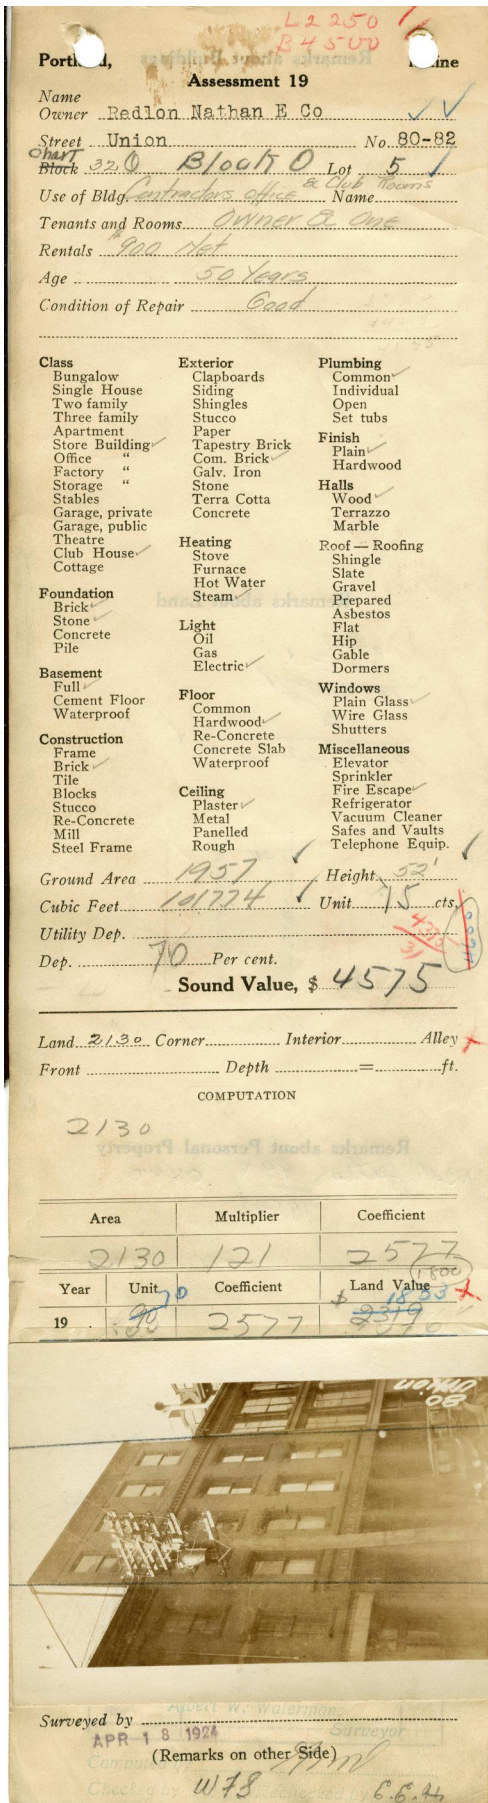 L 2250
B 4500
Portland, Maine
Assessment 19
Name
Owner Redlon Nathan E Co
Street Union No. 80-82
Chart
Block 32 O Block O Lot 5
Use of Bldg. Contractors office & Club Rooms Name
Tenants and Rooms Owner & One
Rentals $900 Net
Age 50 Years
Condition of Repair Good
Class
Bungalow
Single House
Two family
Three family
Apartment
Store Building ✓
Office "
Factory "
Storage "
Stables
Garage, private
Garage, public
Theatre
Club House ✓
Cottage
Foundation
Brick ✓
Stone ✓
Concrete
Pile
Basement
Full ✓
Cement Floor
Waterproof
Construction
Frame
Brick ✓
Tile
Blocks
Stucco
Re-Concrete
Mill
Steel Frame
Exterior
Clapboards
Siding
Shingles
Stucco
Paper
Tapestry Brick
Com. Brick ✓
Galv. Iron
Stone
Terra Cotta
Concrete
Heating
Stove
Furnace
Hot Water
Steam ✓
Light
Oil
Gas
Electric ✓
Floor
Common
Hardwood ✓
Re-Concrete
Concrete Slab
Waterproof
Ceiling
Plaster ✓
Metal
Panelled
Rough
Plumbing
Common ✓
Individual
Open
Set tubs
Finish
Plain ✓
Hardwood
Halls
Wood ✓
Terrazzo
Marble
Roof — Roofing
Shingle
Slate
Gravel
Prepared
Asbestos
Flat
Hip
Gable
Dormers
Windows
Plain Glass ✓
Wire Glass
Shutters
Miscellaneous
Elevator
Sprinkler
Fire Escape ✓
Refrigerator
Vacuum Cleaner
Safes and Vaults
Telephone Equip.
Ground Area 1957 Height 52'
Cubic Feet 101774 Unit 15 cts.
Utility Dep.
Dep. 70 Per cent.
Sound Value, $ 4575
Land 2130 Corner Interior Alley
Front Depth = ft.
COMPUTATION
2130
Area Multiplier Coefficient
2130 121 2577
1800
Year Unit Coefficient Land Value
70 1803
19 . 90 2577 $ 2319
80 Union
Surveyed by
APR 18 1924
(Remarks on other Side)
W F S
E.E.H